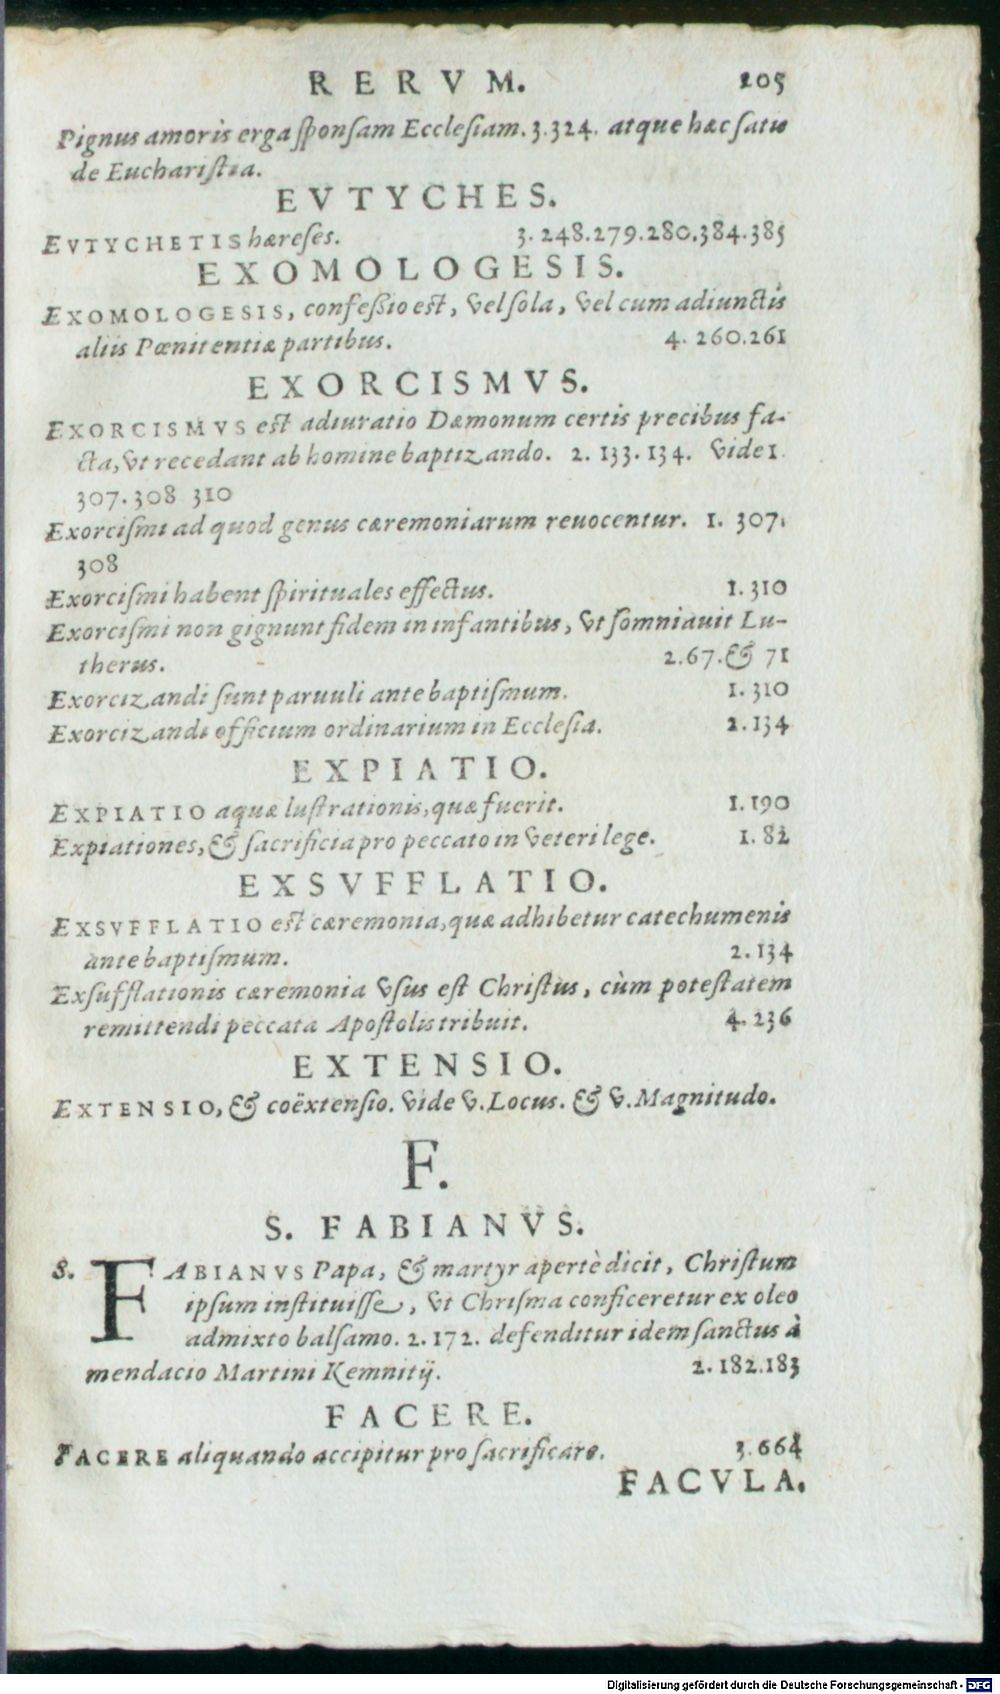 RERVM. 205
Pignus amoris erga sponsam Ecclesiam. 3.324. atque hæc satis
de Eucharistia.
EVTYCHES.
EVTYCHETIS hæreses. 3. 248.279.280.384.385
EXOMOLOGESIS.
EXOMOLOGESIS, confeßio est, vel sola, vel cum adiunctis
aliis Pœnitentiæ partibus. 4. 260.261
EXORCISMVS.
EXORCISMVS est adiuratio Dæmonum certis precibus fa-
cta, vt recedant ab homine baptizando. 2. 133. 134. vide 1.
307. 308 310
Exorcismi ad quod genus cæremoniarum reuocentur. 1. 307.
308
Exorcismi habent spirituales effectus. 1. 310
Exorcismi non gignunt fidem in infantibus, vt somniauit Lu-
therus. 2.67. & 71
Exorcizandi sunt paruuli ante baptismum. 1. 310
Exorcizandi officium ordinarium in Ecclesia. 2. 134
EXPIATIO.
EXPIATIO aquæ lustrationis, quæ fuerit. 1. 190
Expiationes, & sacrificia pro peccato in veteri lege. 1. 82
EXSVFFLATIO.
EXSVFFLATIO est cæremonia, quæ adhibetur catechumenis
ante baptismum. 2. 134
Exsufflationis cæremonia vsus est Christus, cùm potestatem
remittendi peccata Apostolis tribuit. 4. 236
EXTENSIO.
EXTENSIO, & coëxtensio. vide v. Locus. & v. Magnitudo.
F.
S. FABIANVS.
S. FABIANVS Papa, & martyr apertè dicit, Christum
ipsum instituisse, vt Chrisma conficeretur ex oleo
admixto balsamo. 2. 172. defenditur idem sanctus à
mendacio Martini Kemnitij. 2. 182.183
FACERE.
FACERE aliquando accipitur pro sacrificare. 3.664
FACVLA.
Digitalisierung gefördert durch die Deutsche Forschungsgemeinschaft - DFG